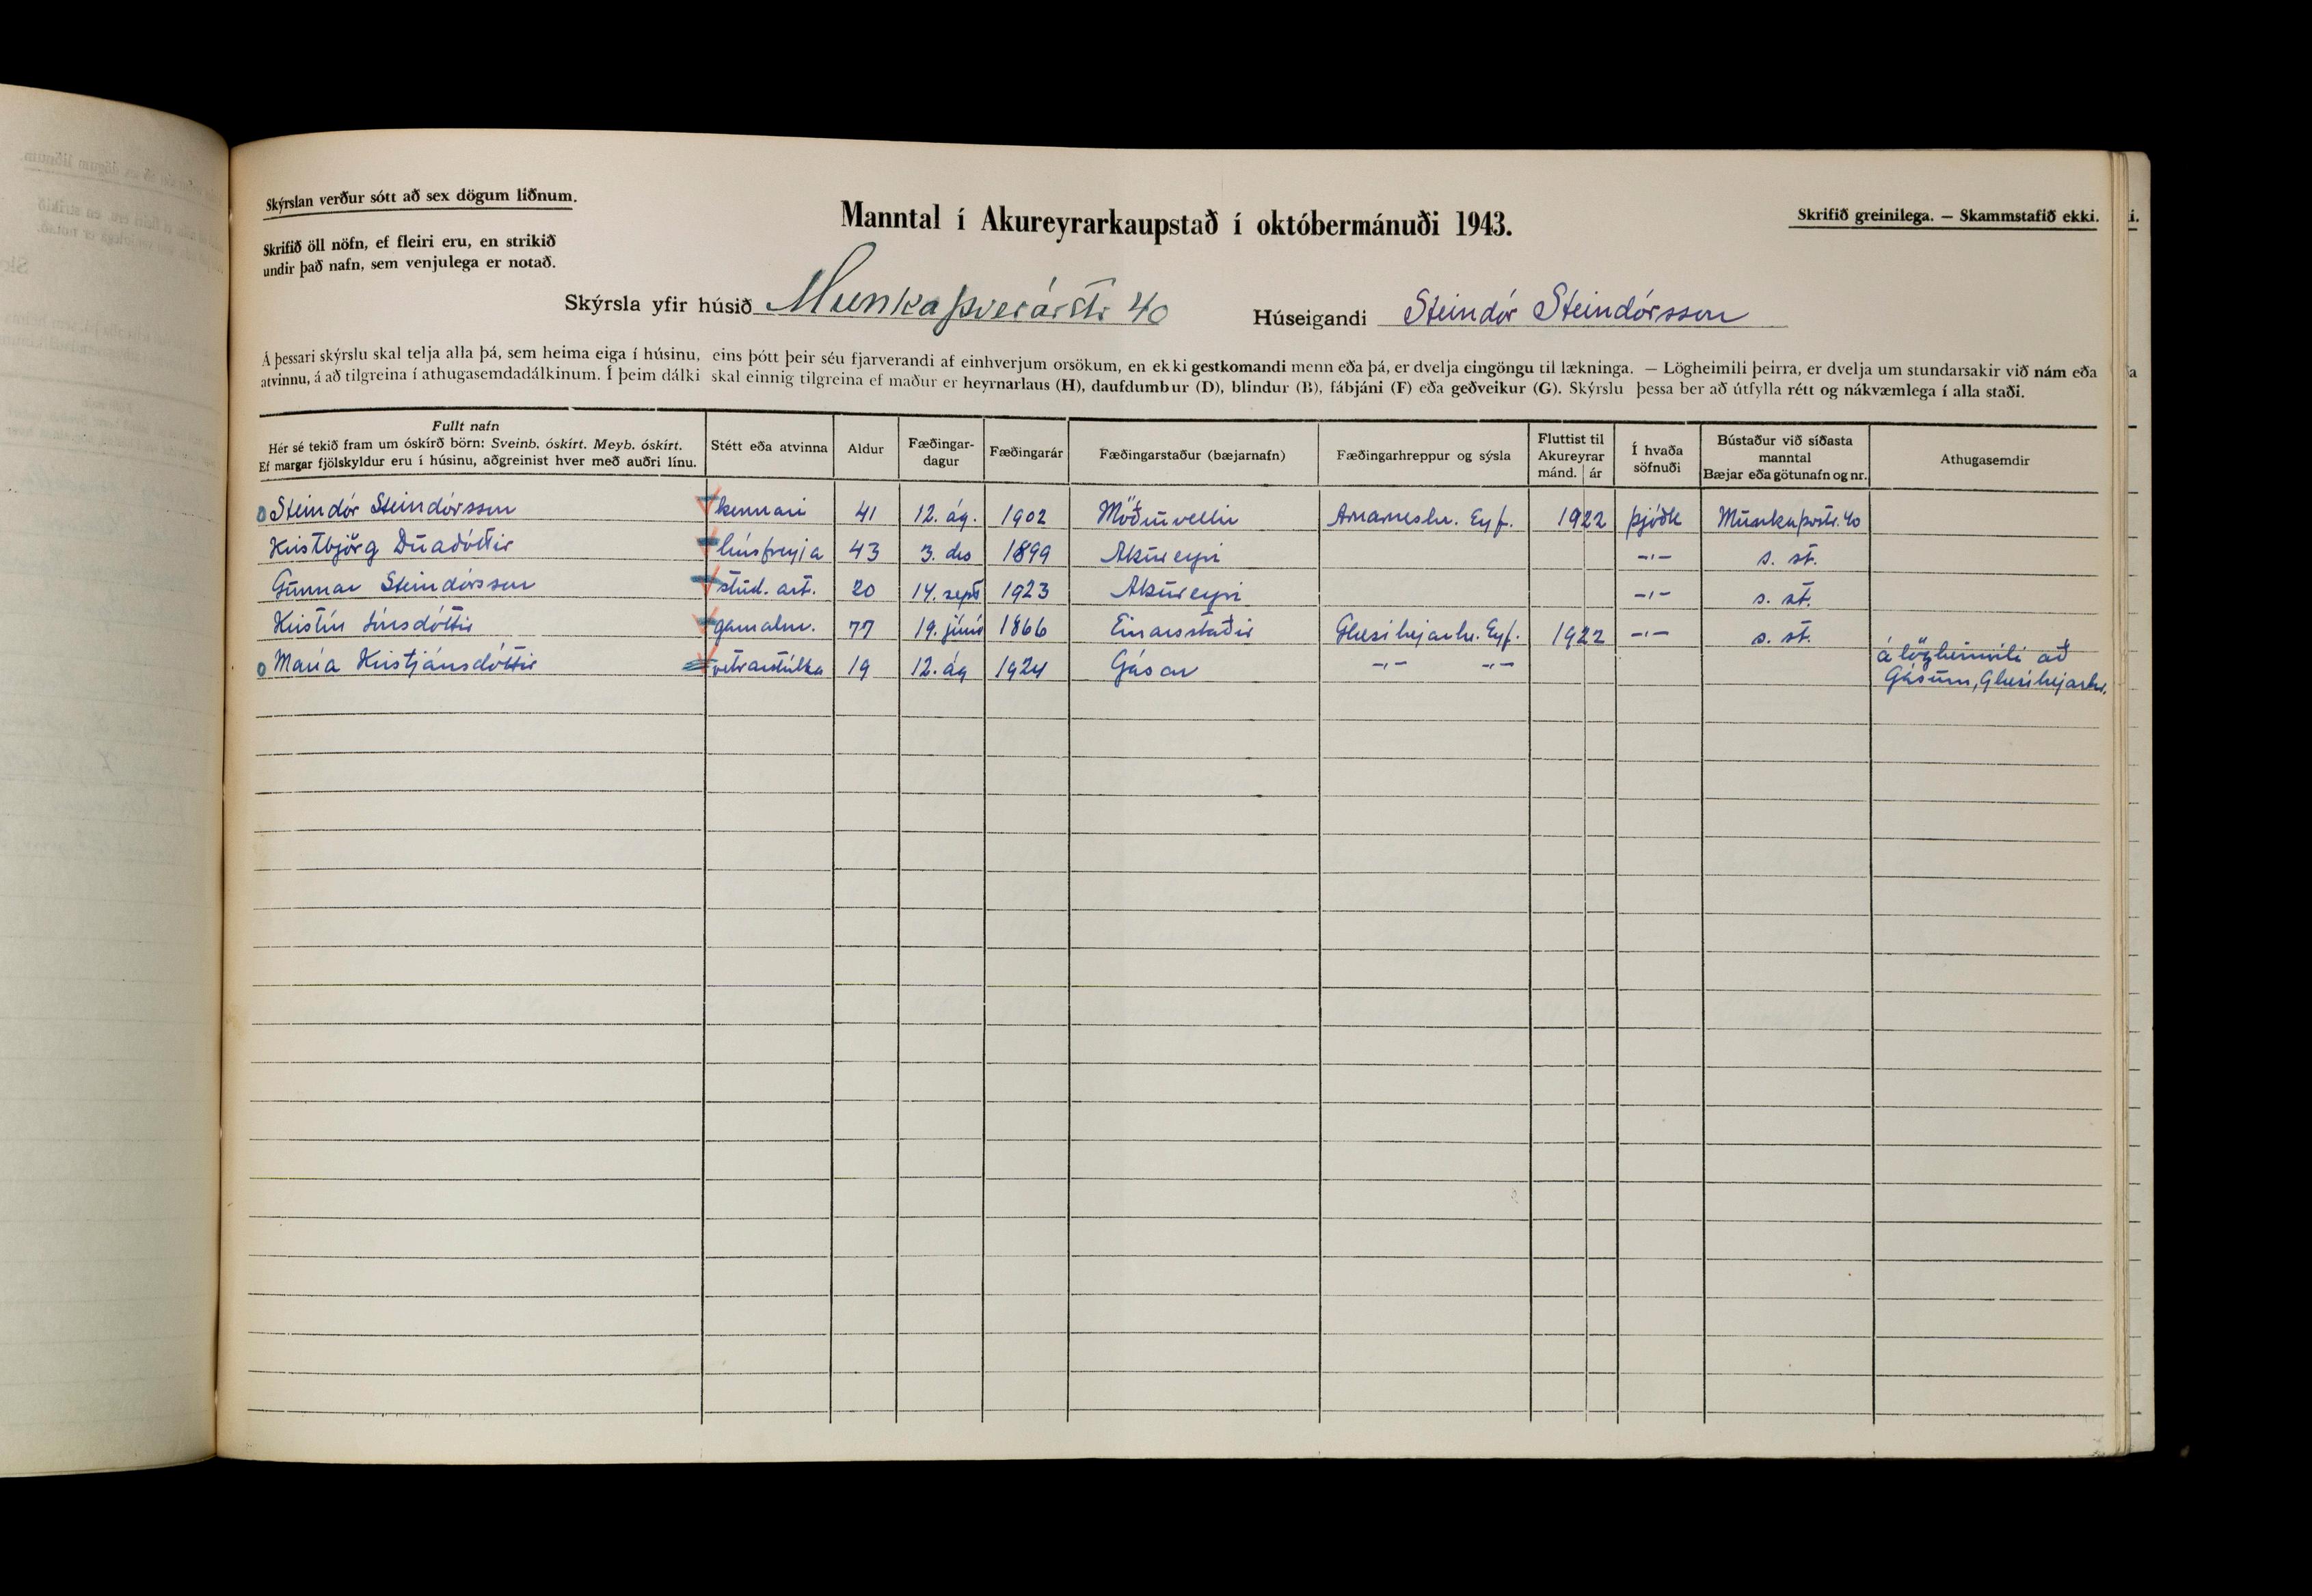 Skýrslan verður sótt að sex dögum liðnum.
Skrifið öll nöfn, ef fleiri eru, en strikið
undir það nafn, sem venjulega er notað.
Manntal í Akureyrarkaupstað í októbermánuði 1943.
Skrifið greinilega. — Skammstafið ekki.
Skýrsla yfir húsið Munkaþverárstr 40 Húseigandi Steindór Steindórsson
Á þessari skýrslu skal telja alla þá, sem heima eiga í húsinu, eins þótt þeir séu fjarverandi af einhverjum orsökum, en ekki gestkomandi menn eða þá, er dvelja eingöngu til lækninga. — Lögheimili þeirra, er dvelja um stundarsakir við nám eða
atvinnu, á að tilgreina í athugasemdadálkinum. Í þeim dálki skal einnig tilgreina ef maður er heyrnarlaus (H), daufdumbur (D), blindur (B), fábjáni (F) eða geðveikur (G). Skýrslu þessa ber að útfylla rétt og nákvæmlega í alla staði.
Fullt nafn
Hér sé tekið fram um óskírð börn: Sveinb. óskírt. Meyb. óskírt.
Ef margar fjölskyldur eru í húsinu, aðgreinist hver með auðri línu.
Stétt eða atvinna
Aldur
Fæðingar-
dagur
Fæðingarár
Fæðingarstaður (bæjarnafn)
Fæðingarhreppur og sýsla
Fluttist til
Akureyrar
mánd. | ár
Í hvaða
söfnuði
Bústaður við síðasta
manntal
Bæjar eða götunafn og nr.
Athugasemdir
Steindór Steindórsson kennari 41 12. ág. 1902 Möðruvellir Arnarneshr. Eyf. 1922 þjóðk Munkaþvstr. 40
Kristbjörg Dúadóttir húsfreyja 43 3. des 1899 Akureyri -"- s. st.
Gunnar Steindórsson stud. art. 20 14. sept 1923 Akureyri -"- s. st.
Kristín Jónsdóttir gamalm. 77 19. júní 1866 Einarsstaðir Glæsibejarhr. Eyf. 1922 -"- s. st.
María Kristjánsdóttir vetrarstúlka 19 12. ág 1924 Gásar -"- -"- á lögheimili að
Gásum, Glæsibejarhr.